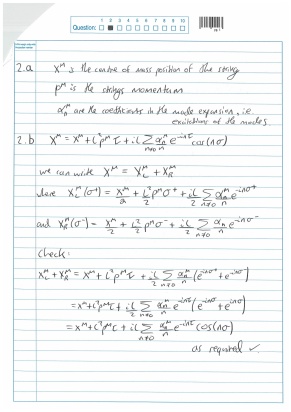 1 2 3 4 5 6 7 8 9 10
Question:
2.a x^μ is the centre of mass position of the string
p^μ is the strings momentum
α_n^μ are the coefficients in the mode expansion, i.e.
excitations of the modes
2.b X^μ = x^μ + l²p^μ τ + il Σ_{n≠0} α_n^μ/n e^{-inτ} cos(nσ)
we can write X^μ = X_L^μ + X_R^μ
where X_L^μ(σ⁺) = x^μ/2 + l²/2 p^μ σ⁺ + il/2 Σ_{n≠0} α_n^μ/n e^{-inσ⁺}
and X_R^μ(σ⁻) = x^μ/2 + l²/2 p^μ σ⁻ + il/2 Σ_{n≠0} α_n^μ/n e^{-inσ⁻}
Check:
X_L^μ + X_R^μ = x^μ + l²p^μ τ + il/2 Σ_{n≠0} α_n^μ/n (e^{-inσ⁺} + e^{-inσ⁻})
= x^μ + l²p^μ τ + il/2 Σ_{n≠0} α_n^μ/n e^{-inτ} (e^{-inσ} + e^{inσ})
= x^μ + l²p^μ τ + il Σ_{n≠0} α_n^μ/n e^{-inτ} cos(nσ)
as required ✓